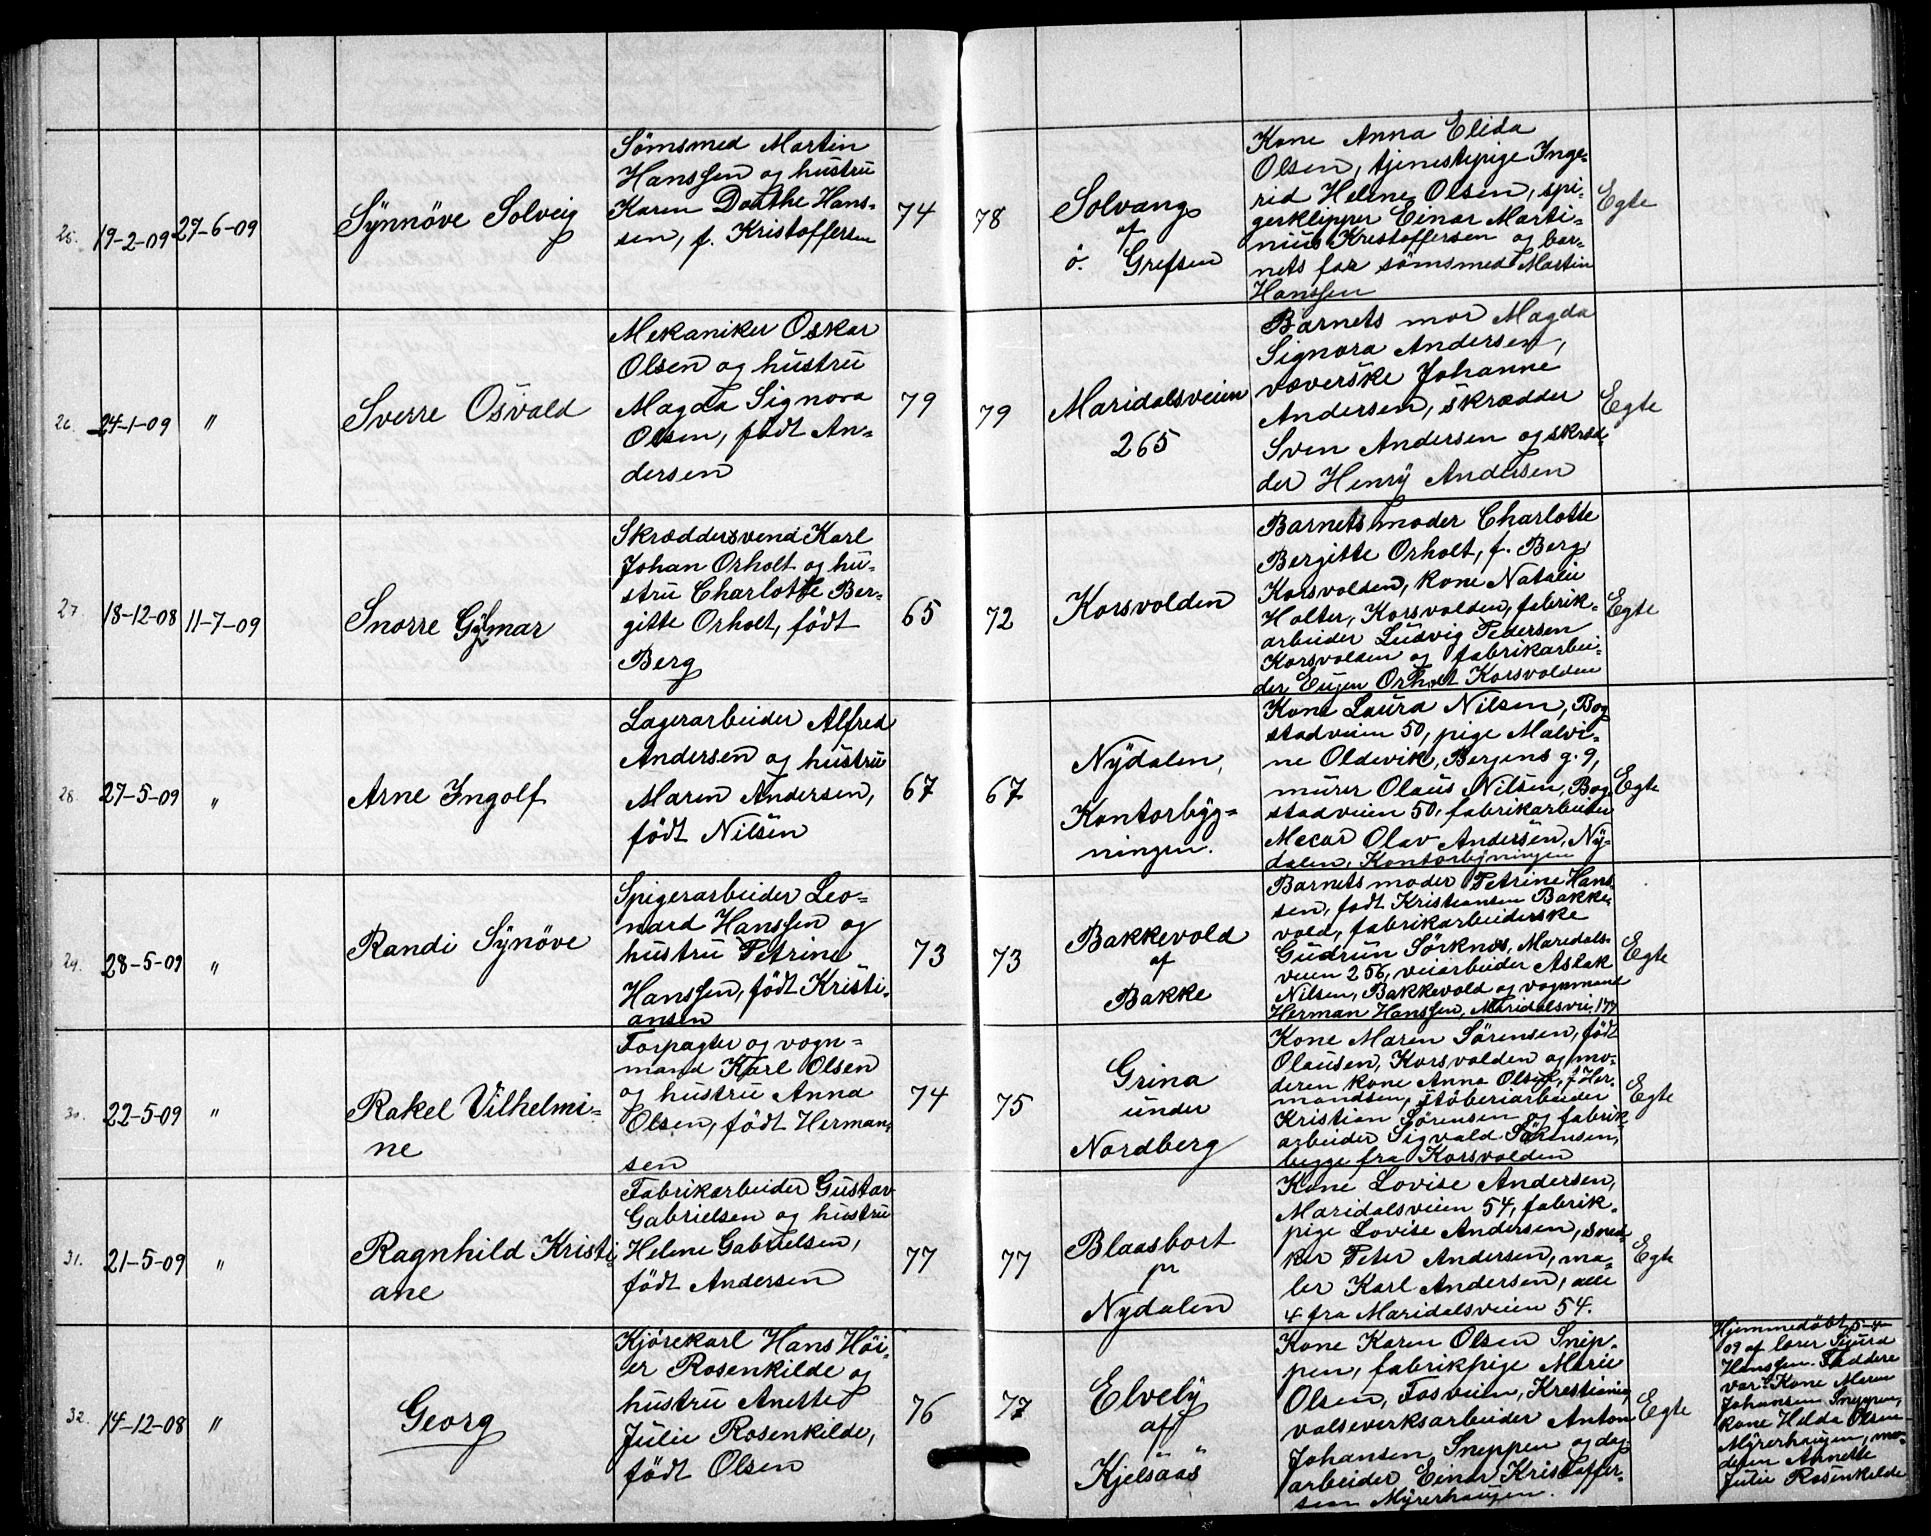 25.
19-2-09
27-6-09
Synnöve Solveig
Sømsmed Martin
Hanssen og hustru
Karen Dorthe Hans-
sen, f. Kristoffersen
74
78
Solvang
af
ö. Grefsen
Kone Anna Elida
Olsen, tjenestepige Inge-
rid Helene Olsen, spi-
gerklipper Einar Marti-
nius Kristoffersen og bar-
nets far sømsmed Martin
Hanssen
Egte
26.
24-1-09
"
Sverre Osvald
Mekaniker Oskar
Olsen og hustru
Magda Signora
Olsen, født An-
dersen
79
79
Maridalsveien
265
Barnets mor Magda
Signora Andersen,
væverske Johanne
Andersen, skrædder
Sven Andersen og skræd-
der Henry Andersen
Egte
27.
18-12-08
11-7-09
Snorre Gylmar
Skræddersvend Karl
Johan Orholt og hu-
stru Charlotte Ber-
gitte Orholt, født
Berg
65
72
Korsvolden
Barnets moder Charlotte
Bergitte Orholt, f. Berg
Korsvolden, kone Natalie
Holter, Korsvolden, fabrik-
arbeider Ludvig Pedersen
Korsvolden og fabrikarbei-
der Eugen Orholt Korsvolden
Egte
28.
27-5-09
"
Arne Ingolf
Lagerarbeider Alfred
Andersen og hustru
Maren Andersen,
født Nilsen
67
67
Nydalen,
Kontorbyg-
ningen.
Kone Laura Nilsen, Bog
stadveien 50, pige Malvi-
ne Oldevik, Bergens g. 9,
murer Olaus Nilsen, Bog
stadveien 50, fabrikarbeider
Olav Andersen, Ny-
dalen, Kontorbygningen
Egte
29.
28-5-09
"
Randi Synöve
Spigerarbeider Leo-
nard Hanssen og
hustru Petrine
Hanssen, født Kristi-
ansen
73
73
Bakkevold
af
Bakke
Barnets moder Petrine Hans
sen, født Kristiansen Bakke-
vold, fabrikarbeiderske
Gudrun Sörknes, Maridals-
veien 256, veiarbeider Aslak
Nilsen, Bakkevold og vognmand
Herman Hanssen, Maridalsvei. 177
Egte
30.
22-5-09
"
Rakel Vilhelmi-
ne
Forpagter og vogn-
mand Karl Olsen
og hustru Anna
Olsen, født Herman-
sen
74
75
Grina
under
Nordberg
Kone Maren Sørensen, født
Olausen, Korsvolden og mo-
deren kone Anna Olsen, f. Her-
mandsen, støberiarbeider
Kristian Sørensen og fabrik-
arbeider Sigvald Sørensen,
begge fra Korsvolden
Egte
31.
21-5-09
"
Ragnhild Kristi-
ane
Fabrikarbeider Gustav
Gabrielsen og hustru
Helene Gabrielsen,
født Andersen
77
77
Blaasbort
pr
Nydalen
Kone Lovise Andersen,
Maridalsveien 54, fabrik-
pige Lovise Andersen, sned-
ker Peter Andersen, ma-
ler Karl Andersen, alle
4 fra Maridalsveien 54.
Egte
32.
14-12-08
"
Georg
Kjørekarl Hans Höi-
er Rosenkilde og
hustru Anette
Julie Rosenkilde,
født Olsen
76
77
Elvely
af
Kjelsaas
Kone Karen Olsen Snip-
pen, fabrikpige Marie
Olsen, Fosveien, Krestiania,
valseverksarbeider Anton
Johansen Sneppen og dag
arbeider Einar Kristoffer-
sen Myrerhaugen.
Egte
Hjemmedøbt 5-4-
09 af lærer Sigurd
Hanssen. Faddere
var: Kone Maren
Johansen Sneppen,
kone Hilda Olsen
Myrerhaugen, mo-
deren Annette
Julie Rosenkilde